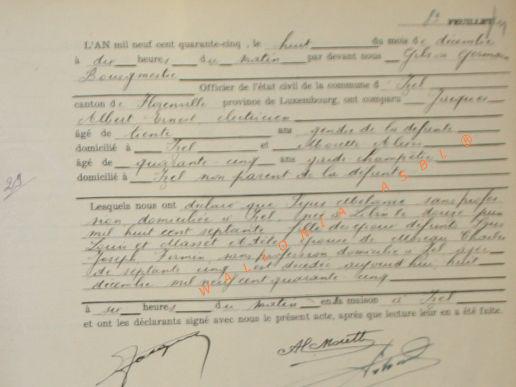 8e FEUILLET
L'AN mil neuf cent quarante-cinq, le huit du mois de décembre
à dix heures du matin par devant nous Germain
Bourgmestre
Officier de l'état civil de la commune d' Izel
canton de Florenville province de Luxembourg, ont comparu Jacques
Albert Ernest électricien
âgé de trente ans gendre de la défunte
domicilié à Izel et Morette
âgé de quarante-cinq ans garde champêtre
domicilié à Izel non parent de la défunte
Lesquels nous ont déclaré que Mélanie sans profes
sion domiciliée à Izel, née à le douze juin
mil huit cent septante fille de époux défunts
Louis et Masset épouse de Moreau Charles
Joseph Firmin, sans profession domicilié à Izel âgée
de septante cinq est décédée aujourd'hui huit
décembre mil neuf cent quarante cinq
à six heures du matin en sa maison à Izel
et ont les déclarants signé avec nous le présent acte, après que lecture leur en a été faite.
WALLONIA ASBL ®
Al Morette